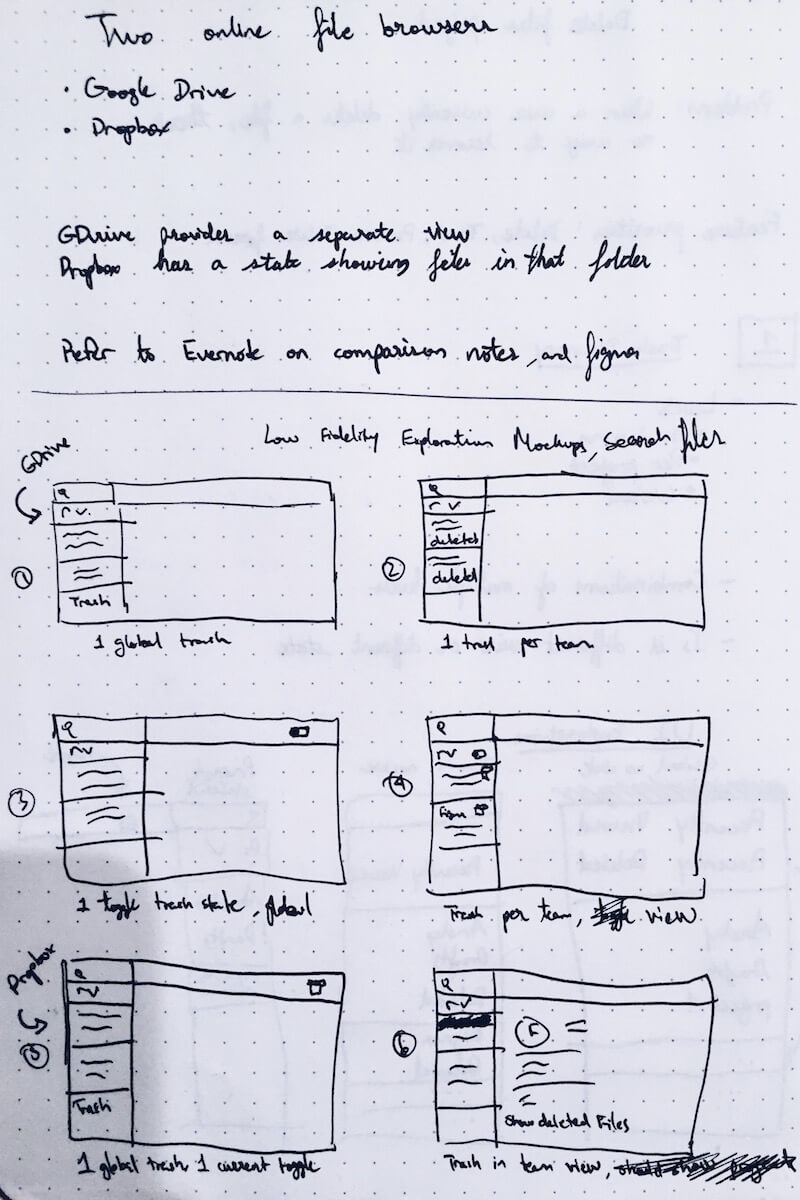 Two online file browsers
• Google Drive
• Dropbox
GDrive provides a separate view
Dropbox has a state showing files in that folder
Refer to Evernote on comparison notes, and figma
Low Fidelity Exploration Mockups, search files
GDrive
1
Trash
1 global trash
2
deleted
deleted
1 trash per team
3
1 toggle trash state, global
4
Figma
Trash per team, view
Dropbox
5
Trash
1 global trash 1 current toggle
6
F
Show deleted Files
Trash in team view,